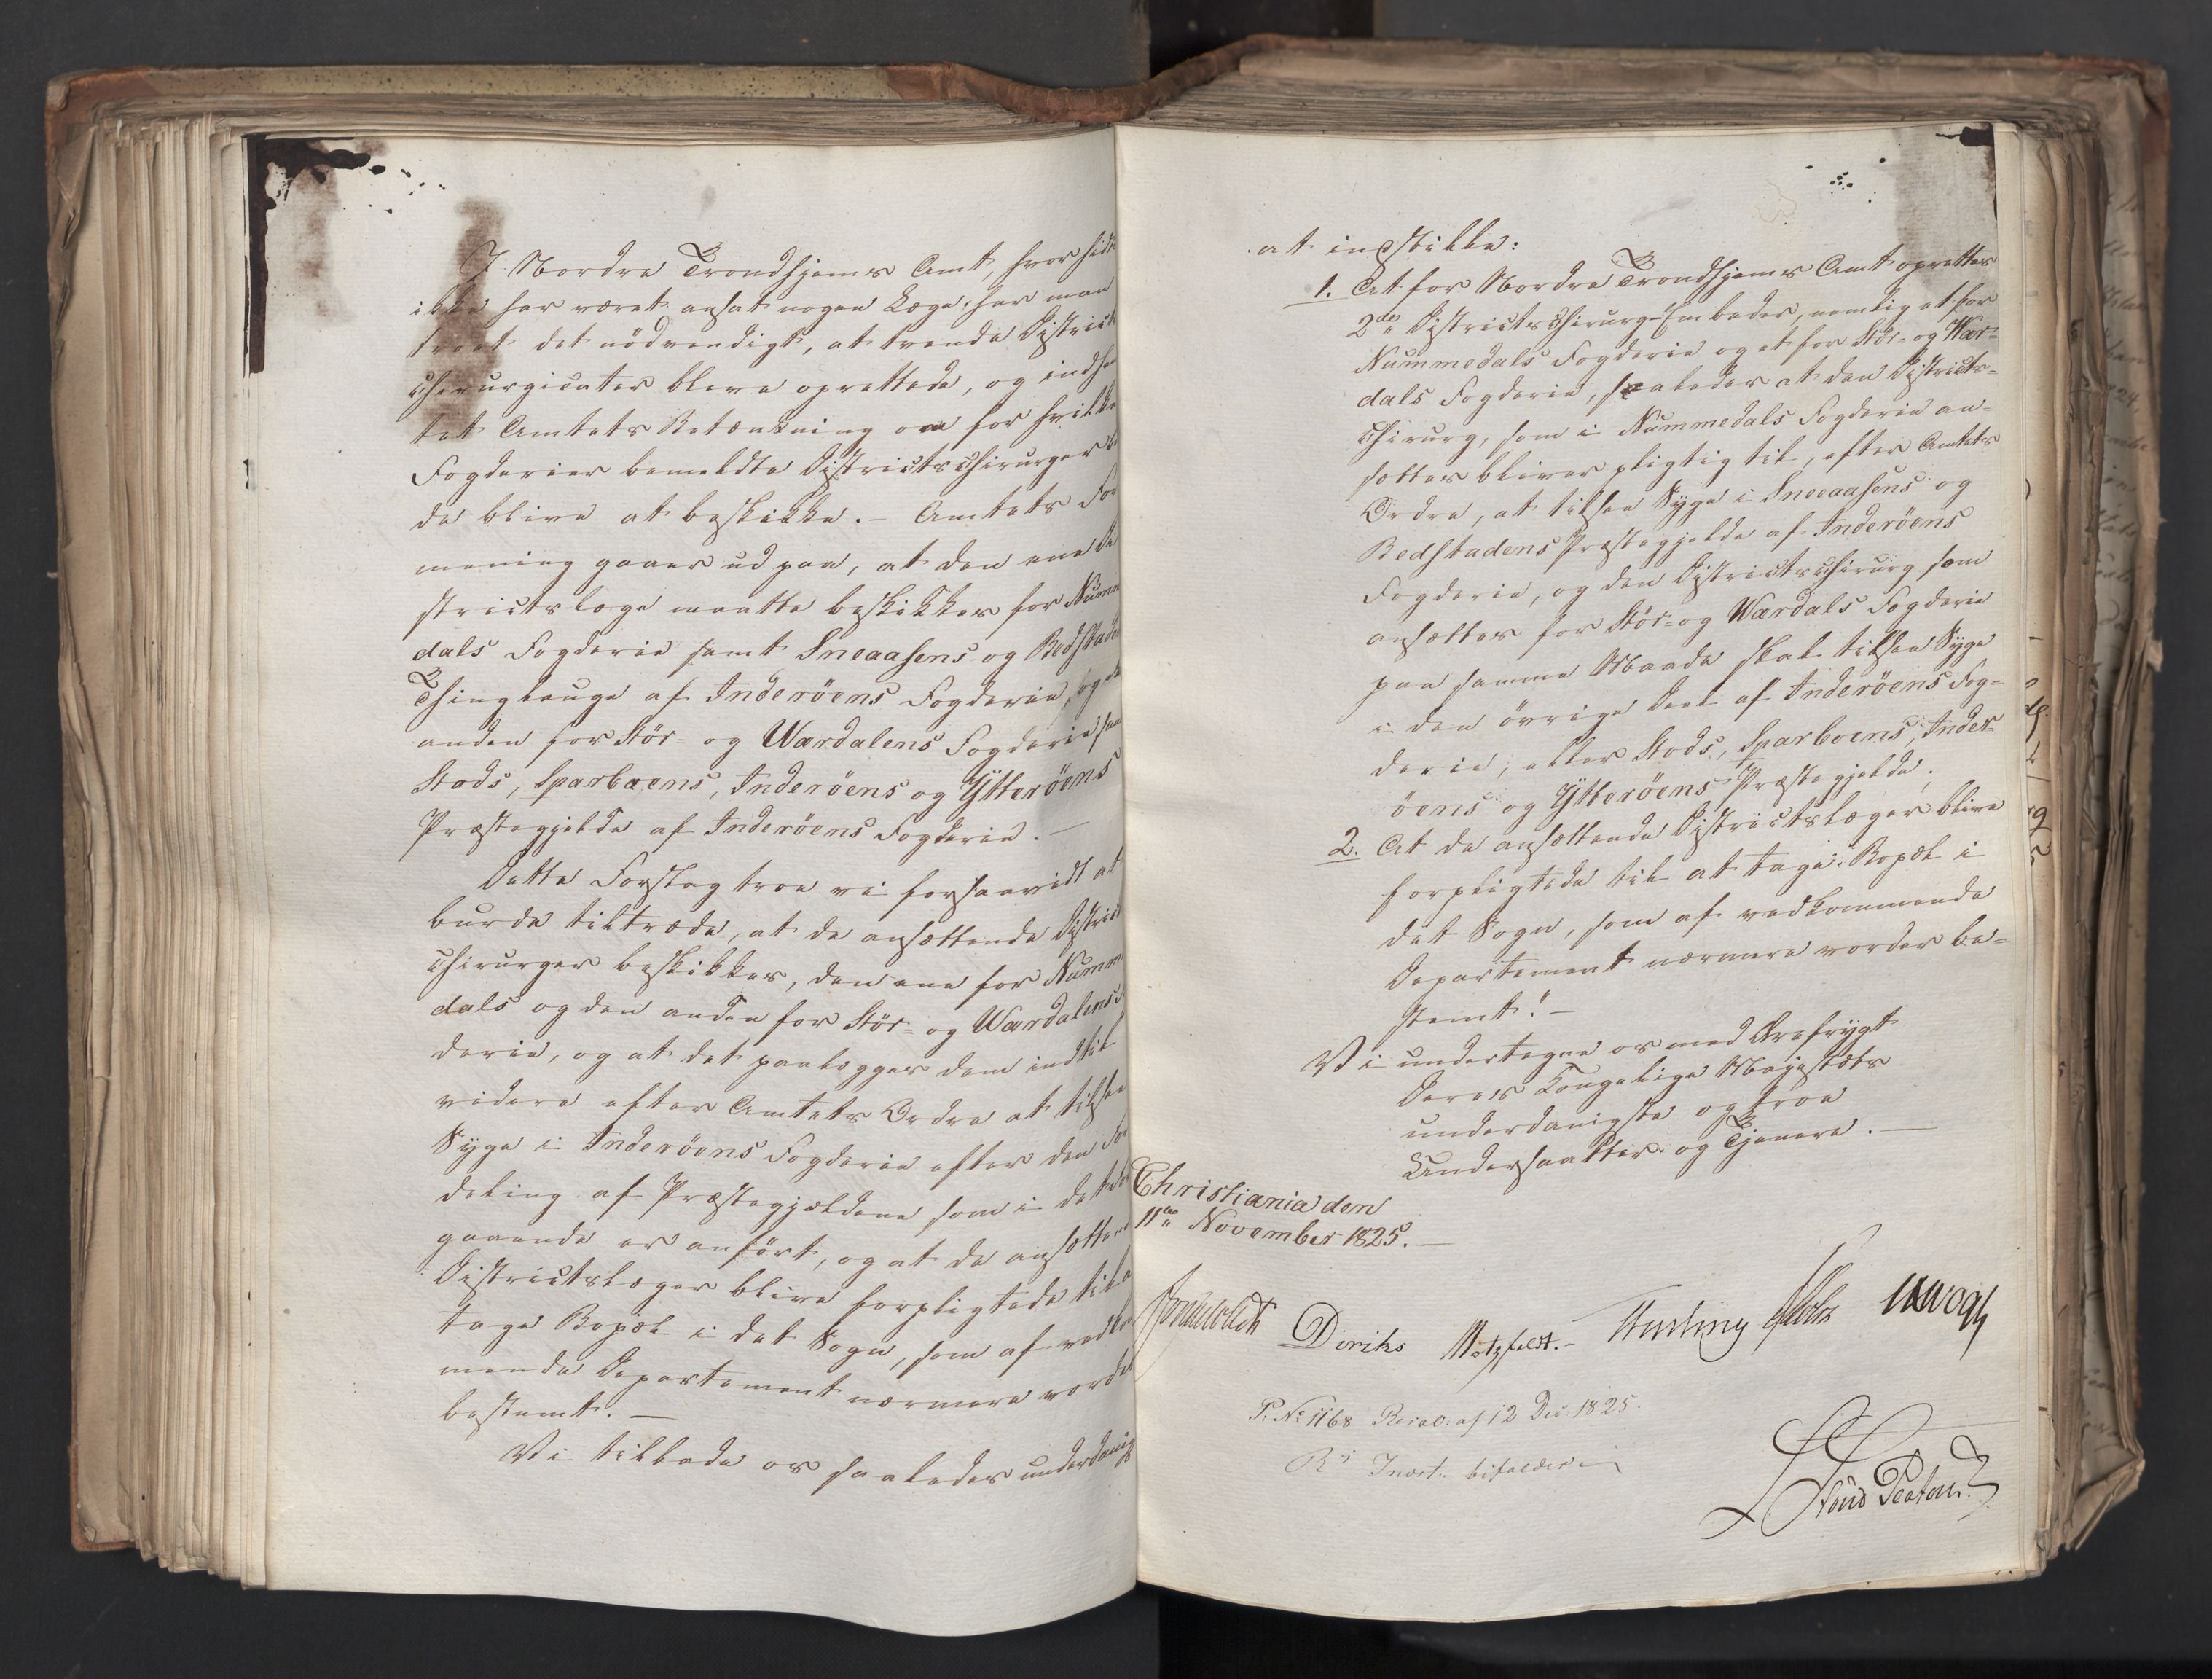 I Nordre Trondhjems Amt, hvor hidt
ikke har været ansat nogen Læge, har man
troet det nödvendigt, at tvende District
chirurgicater bleve oprettede, og indhen
tet Amtets Betænkning om for hvilke
Fogderier bemeldte Districtschirurger
de blive at beskikke. – Amtets For
mening gaaer ud paa, at den ene Di
strictslæge maatte beskikkes for Numme
dals Fogderie samt Sneaasens og Bedstaden
Thinglauge af Inderöens Fogderie, og
anden for Stör- og Wærdalens Fogderie
Stods, Sparboens, Inderöens og Ytteröens
Præstegjelde af Inderöens Fogderie. –
Dette Forslag troe vi forsaavidt at
burde tiltræde, at de ansættende District
chirurger beskikkes, den ene for Numme
dals og den anden for Stör- og Wærdalens
derie, og at det paalægges dem indtil
videre efter Amtets Ordre at tilsee
Syge i Inderöens Fogderie efter den For
deling af Præstegjeldene som i det
gaaende er anført, og at de ansætten
Districtslæger blive forpligtede til a
tage Bopæl i det Sogn, som af vedkom
mende Departement nærmere vorder
bestemt. –
Vi tillade os saaledes underdanig
at indstille:
1. At for Nordre Trondhjems Amt oprettes
2de Districtschirurg-Embeder, nemlig et for
Nummedals Fogderie og et for Stör- og Wær-
dals Fogderie, saaledes at den Districts-
chirurg, som i Nummedals Fogderie an-
sættes bliver pligtig til, efter Amtets
Ordre, at tilsee Syge i Sneeaasens og
Bedstadens Præstegjelde af Inderöens
Fogderie, og den Districtschirurg som
ansættes for Stör- og Wærdals Fogderie
paa samme Maade skal tilsee Syge
i den övrige Deel af Inderöens Fog-
derie, eller Stods, Sparboens, Inder-
öens og Ytteröens Præstegjelde.
2. At de ansættende Districtslæger blive
forpligtede til at tage Bopæl i
det Sogn, som af vedkommende
Departement nærmere vorder be-
stemt." –
Vi undertegne os med Ærefrygt
Deres Kongelige Majestæts
underdanigste og troe
Undersaatter og Tjenere. –
Christiania den
11te November 1825. –
Diriks Motzfeldt. –
P. No 1168 Resol: af 12 Dec: 1825.
Rs Indst. bifaldes